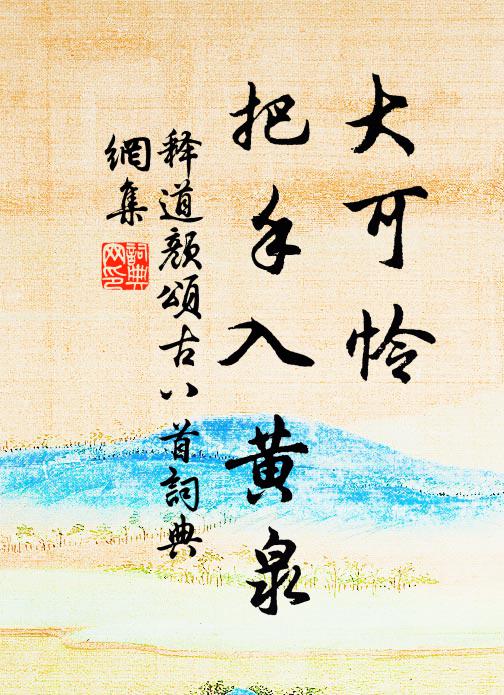 大可怜
把手入黄泉
释道颜颂古八首詞典
網集
詞典
网印